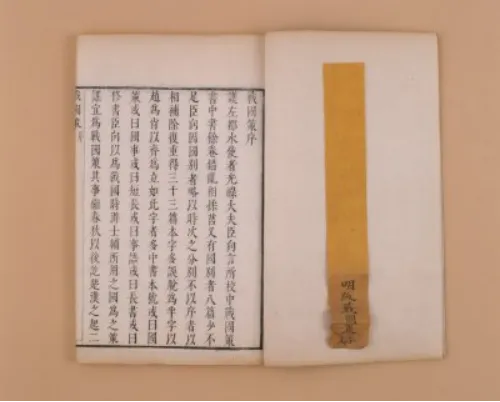 戰國策序
護左都水使者光祿大夫臣向言所校中戰國策
書中書餘卷錯亂相糅莒又有國別者八篇少不
足臣向因國別者略以時次之分別不以序者以
相補除復重得三十三篇本字多誤脫為半字以
趙為肖以齊為立如此字者多中書本號或曰國
策或曰國事或曰短長或曰事語或曰長書或曰
脩書臣向以為戰國時游士輔所用之國為之策
謀宜為戰國策其事繼春秋以後訖楚漢之起二
明 戰國策